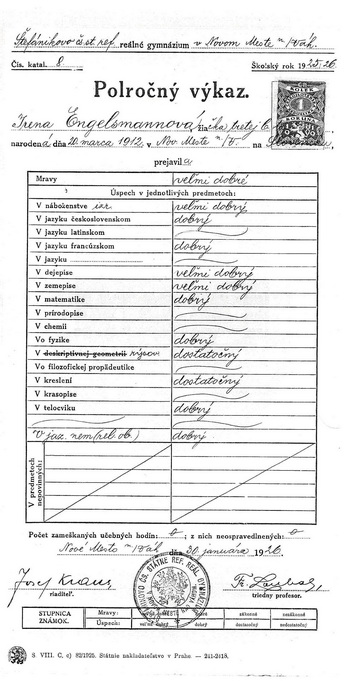 Štefánikovo čs. st. ref. reálné gymnázium v Novom Meste n/Váh.
Čís. katal. 8 Školský rok 1925-26
Polročný výkaz.
KOLEK
1
KORUNA
Irena Engelsmannová, žiačka tretej
narodená dňa 20. marca 1912, v Nov. Meste n/V. na
prejavila
Mravy veľmi dobré
Úspech v jednotlivých predmetoch:
V náboženstve izr. veľmi dobrý
V jazyku československom dobrý
V jazyku latinskom
V jazyku francúzskom dobrý
V jazyku
V dejepise veľmi dobrý
V zemepise veľmi dobrý
V matematike dobrý
V prírodopise
V chemii
Vo fyzike dobrý
V deskriptívnej geometrii rýsov. dostatočný
Vo filozofickej propädeutike
V kreslení dostatočný
V krasopise
V telocviku dobrý
V jaz. nem. (rel. ob.) dobrý
V predmetoch nepovinných:
Počet zameškaných učebných hodín: 0 ; z nich neospravedlnených: 0
Nové Mesto n/Váh dňa 30. januára 1926
Josef Kraus
riaditeľ. triedny profesor.
STUPNICA ZNÁMOK. Mravy: veľmi dobré dobré zákonné nezákonné
Úspech: veľmi dobrý dobrý dostatočný nedostatočný
S. VIII. C. c) 82/1925. Státnie nakladateľstvo v Prahe — 241-2418.